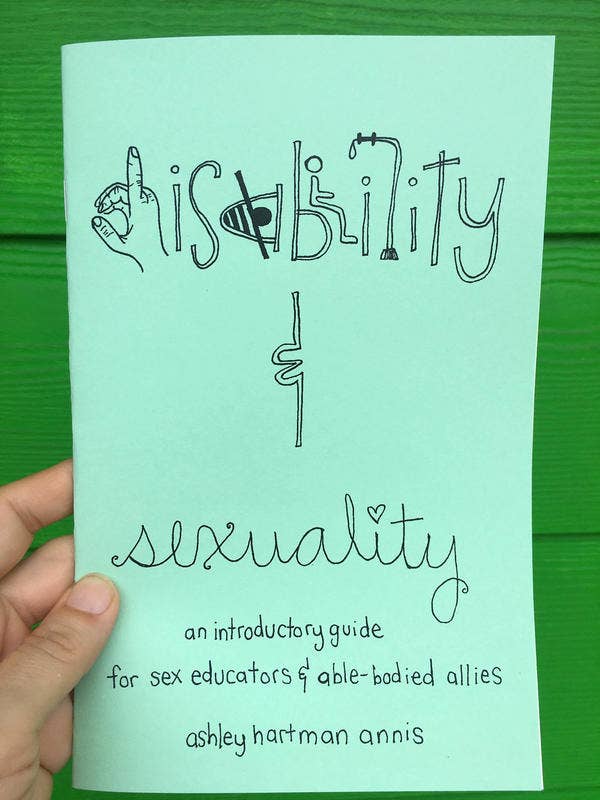 disability
&
sexuality
an introductory guide
for sex educators & able-bodied allies
ashley hartman annis